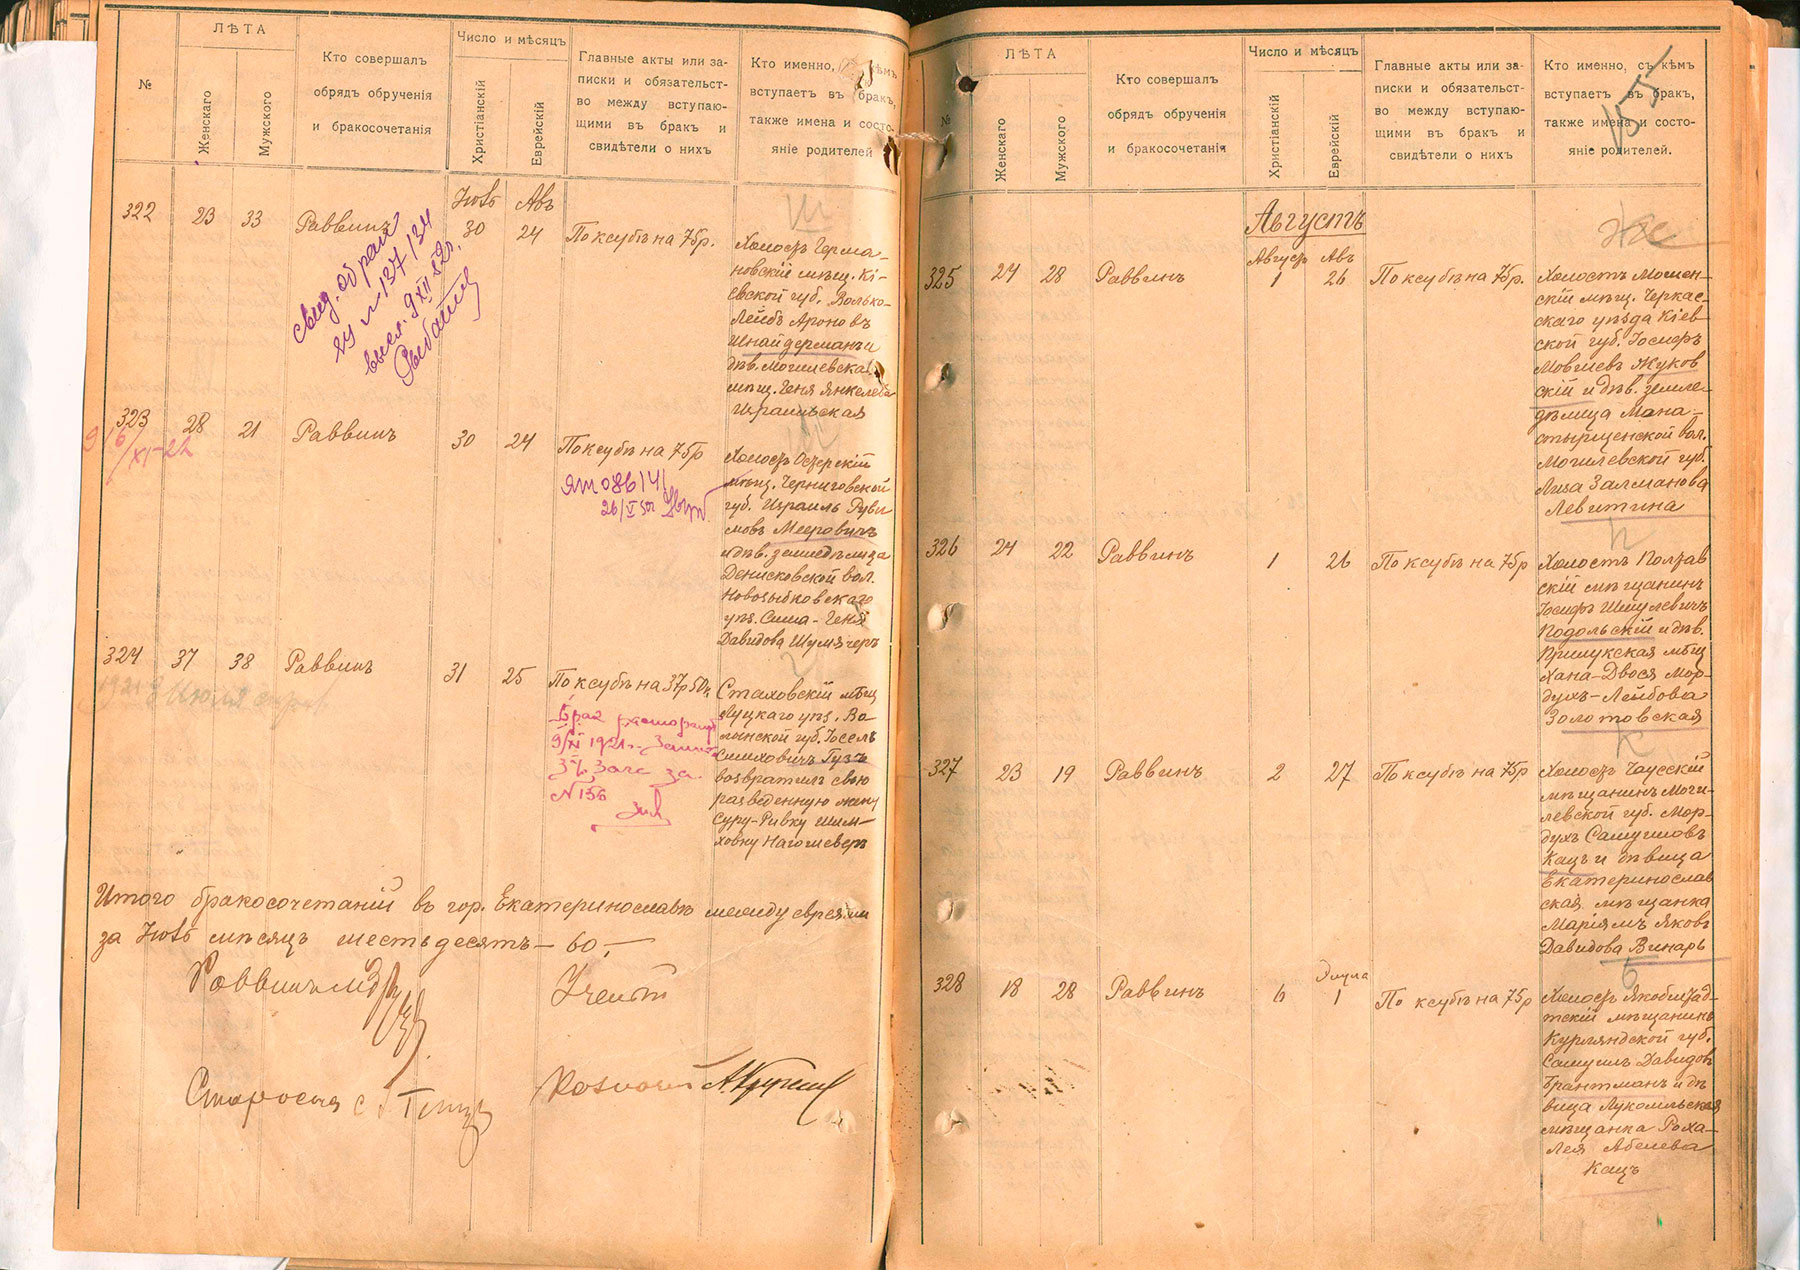 №
ЛѢТА
Женскаго
Мужского
Кто совершалъ
обрядъ обрученія
и бракосочетанія
Число и мѣсяцъ
Христіанскій
Еврейскій
Главные акты или за-
писки и обязательст-
во между вступаю-
щими въ бракъ и
свидѣтели о нихъ
Кто именно, съ кѣмъ
вступаетъ въ бракъ,
также имена и состо-
яніе родителей
322
23
33
Раввинъ
Іюль
30
Авъ
24
По ксубѣ на 75р.
Холостъ Герма-
новскій мѣщ. Кі-
евской губ. Волько-
Лейбъ Ароновъ
Шнайдерманъ и
дѣв. Могилевская
мѣщ. Геня Янкелева
Израильская
свид. о браке
№ 137134
выел. 9 XII 52г.
323
28
21
Раввинъ
30
24
По ксубѣ на 75р
Холостъ Озерскій
мѣщ. Черниговской
губ. Израиль Руви
мовъ Мееровичъ
и дѣв. земледѣлица
Денисковской вол.
Новозыбковскаго
уѣз. Сима-Геня
Давидова Шумячеръ
324
37
38
Раввинъ
31
25
По ксубѣ на 37р 50к
Стаховскій мѣщ
Луцкаго уѣз. Во-
лынской губ. Іосель
Симховичъ Гузъ
возвратилъ свою
разведенную жену
Суру-Ривку Шим-
ховну Нагошеверъ
Брак расторгнут
9/XI 1921г.
Загс за
№ 156
Итого бракосочетаній въ гор. Екатеринославѣ между евреями
за Іюль мѣсяцъ шестьдесятъ — 60 —
Раввинъ
Староста
№
ЛѢТА
Женскаго
Мужского
Кто совершалъ
обрядъ обрученія
и бракосочетанія
Число и мѣсяцъ
Христіанскій
Еврейскій
Главные акты или за-
писки и обязательст-
во между вступаю-
щими въ бракъ и
свидѣтели о нихъ
Кто именно, съ кѣмъ
вступаетъ въ бракъ,
также имена и состо-
яніе родителей.
155
Августъ
325
24
28
Раввинъ
Августъ
1
Авъ
26
По ксубѣ на 75р.
Холостъ Мошен-
скій мѣщ. Черкас-
скаго уѣзда Кіев-
ской губ. Іосифъ
Мовшевъ Жуков
скій и дѣв. земле-
дѣлица Мона-
стырщенской вол.
Могилевской губ.
Лиза Залманова
Левитина
326
24
22
Раввинъ
1
26
По ксубѣ на 75р
Холостъ Полтав
скій мѣщанинъ
Іосифъ Шмулевичъ
Подольскій и дѣв.
Прилукская мѣщ
Хана-Двося Мор-
духъ-Лейбова
Золотовская
327
23
19
Раввинъ
2
27
По ксубѣ на 75р
Холостъ Чаусскій
мѣщанинъ Моги-
левской губ. Мор-
духъ Самуиловъ
Кацъ и дѣвица
Екатеринослав
ская мѣщанка
Маріямъ Яковъ
Давидова Винаръ
328
18
28
Раввинъ
6
Элула
1
По ксубѣ на 75р
Холостъ Якобштад-
тскій мѣщанинъ
Курляндской губ.
Самуилъ Давидовъ
Брантманъ и дѣ
вица Лукомльская
мѣщанка Роха-
Лея Абелева
Кацъ